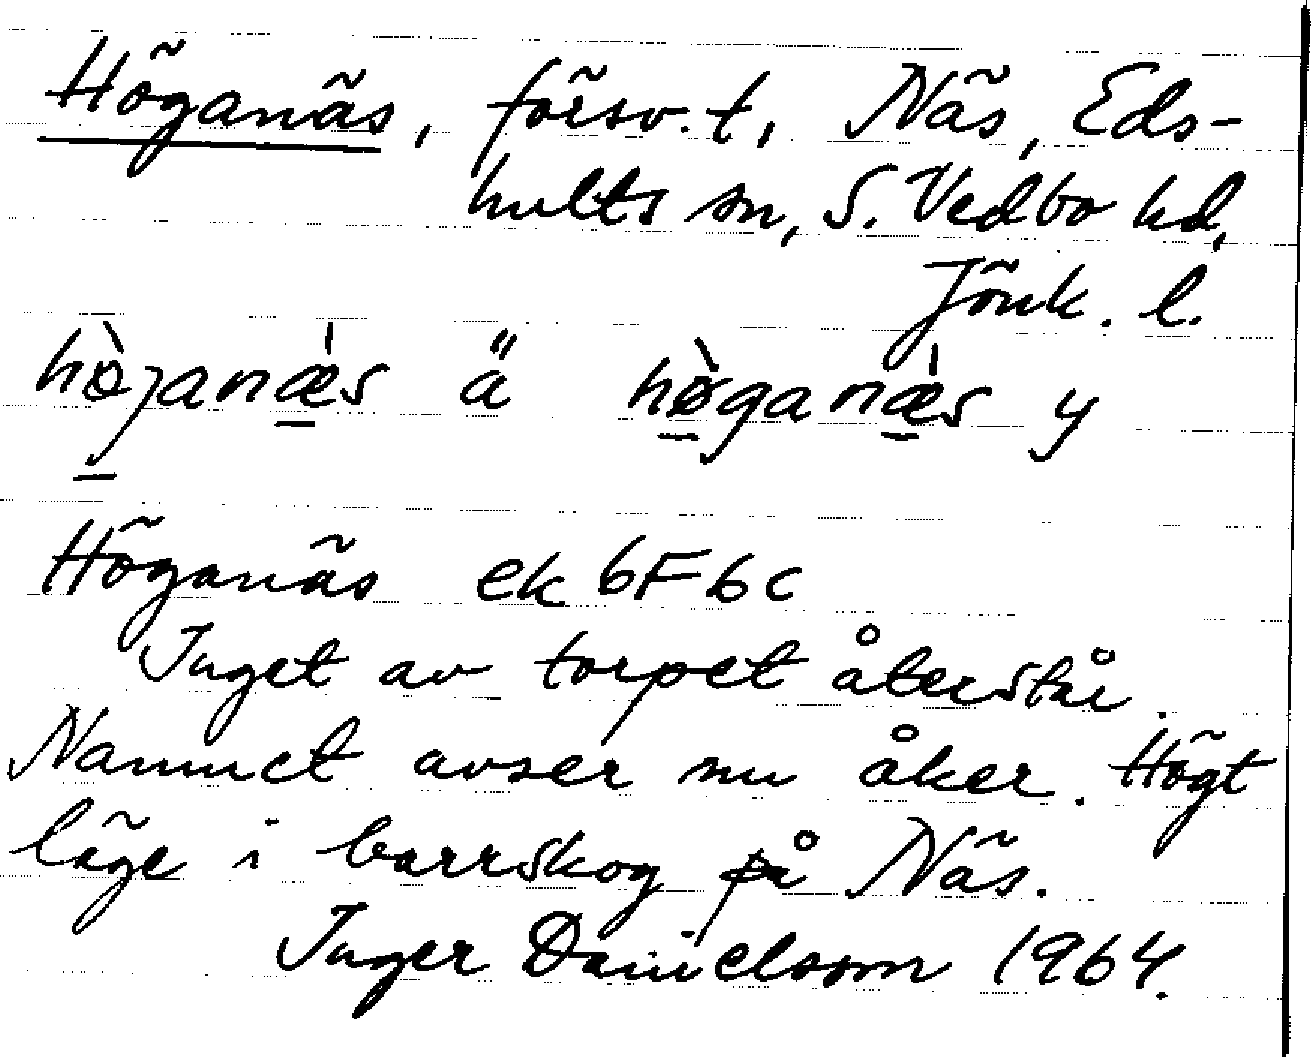 Höganäs, försv. t, Näs, Eds-
hults sn, S. Vedbo hd,
Jönk. l.
hø̀janæ̀s ä hø̀ganæ̀s y
Höganäs ek 6F6c
Inget av torpet återstår.
Namnet avser nu åker. Högt
läge i barrskog på Näs.
Inger Danielsson 1964.